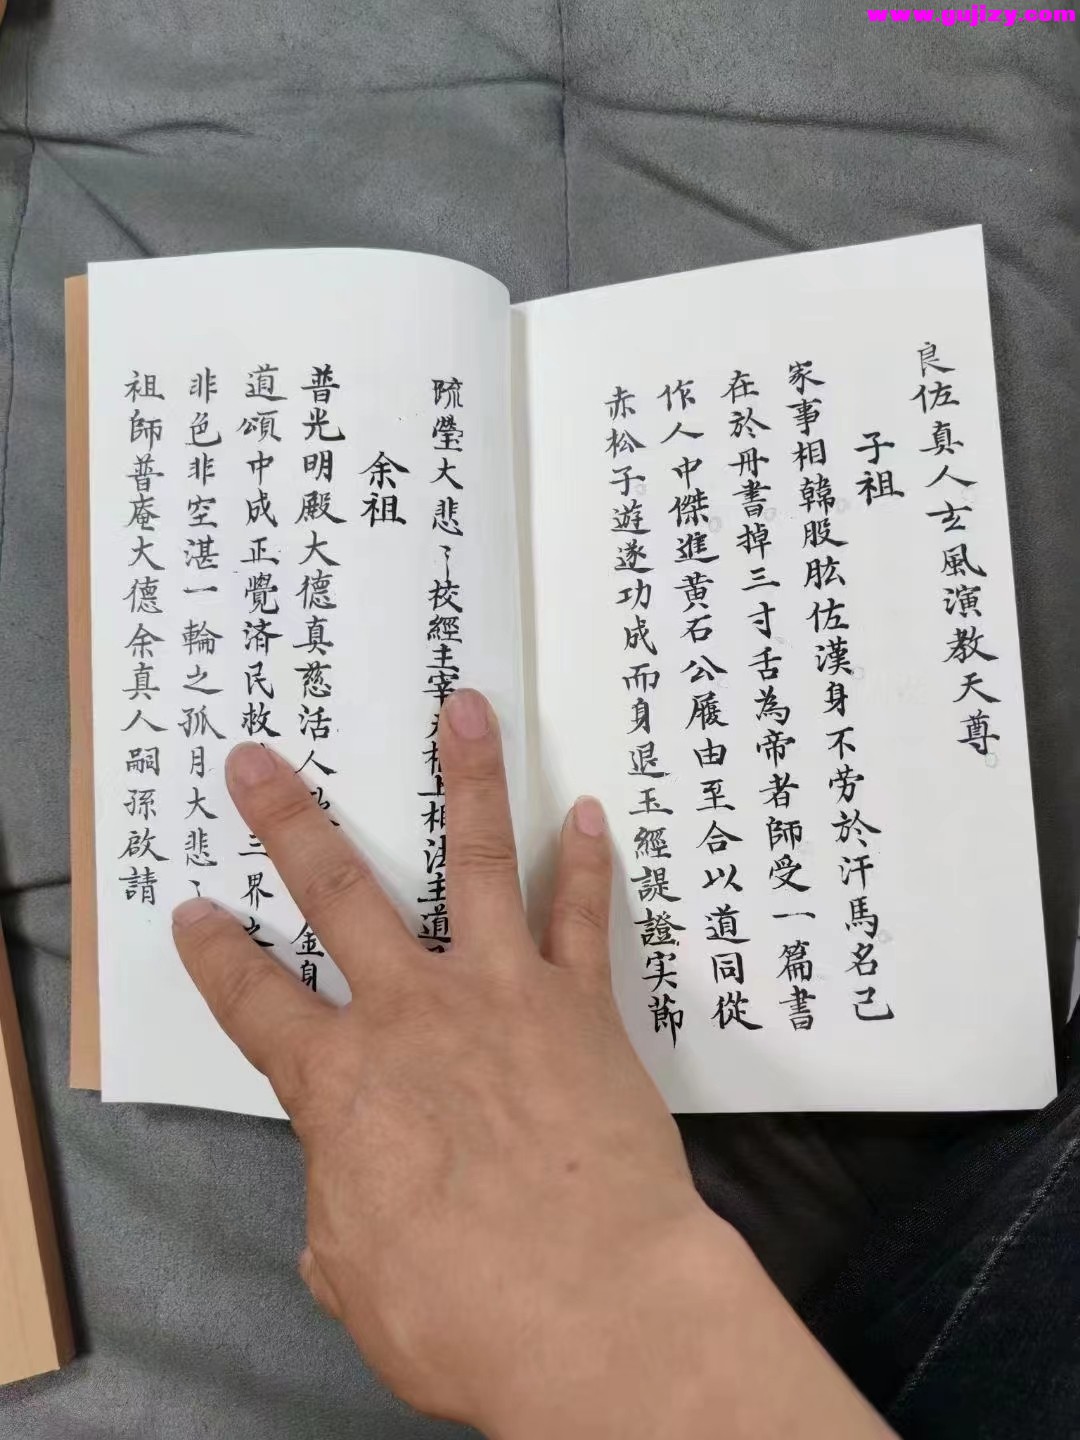 www.gujizy.com
良佐真人玄風演教天尊
子祖
家事相韓股肱佐漢身不勞於汗馬名己
在於冊書掉三寸舌為帝者師受一篇書
作人中傑進黄石公履由至合以道同從
赤松子遊遂功成而身退玉經諟證实節
疏瑩大悲〻校經主宰 相上相法主道
余祖
普光明殿大德真慈活人 金身
道頌中成正覺済民救 三界之
非色非空湛一輪之孤月大悲〻
祖師普庵大德余真人嗣孫啟請